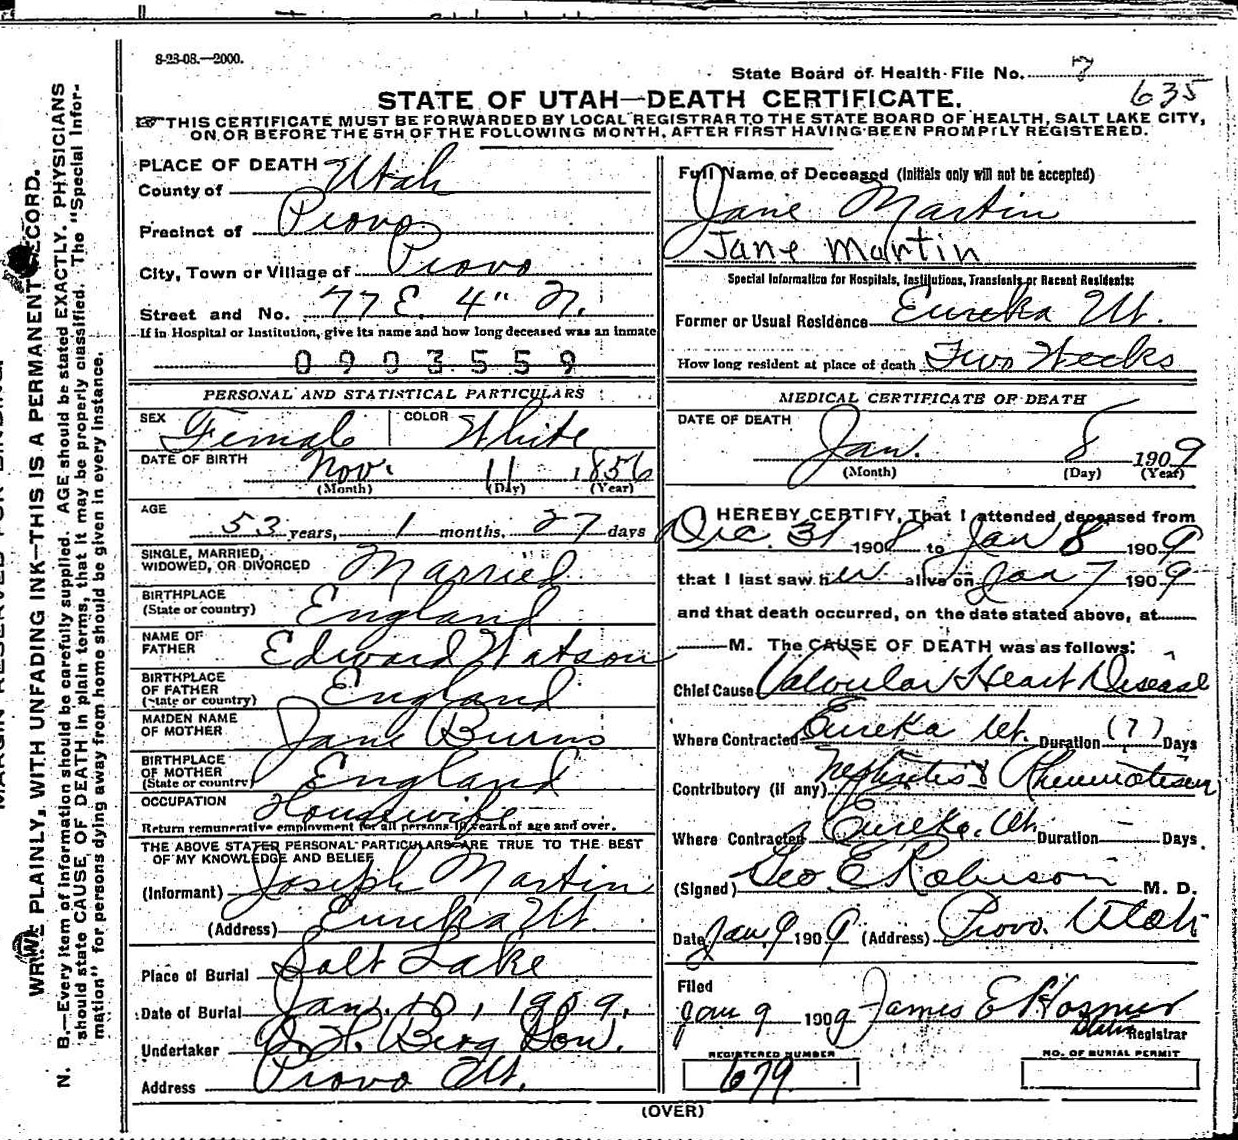 8-23-08.—2000.
State Board of Health File No. 7
635
STATE OF UTAH—DEATH CERTIFICATE.
THIS CERTIFICATE MUST BE FORWARDED BY LOCAL REGISTRAR TO THE STATE BOARD OF HEALTH, SALT LAKE CITY,
ON OR BEFORE THE 5TH OF THE FOLLOWING MONTH, AFTER FIRST HAVING BEEN PROMPTLY REGISTERED.
WRITE PLAINLY, WITH UNFADING INK—THIS IS A PERMANENT RECORD.
N. B.—Every item of information should be carefully supplied. AGE should be stated EXACTLY. PHYSICIANS
should state CAUSE OF DEATH in plain terms, that it may be properly classified. The "Special Infor-
mation" for persons dying away from home should be given in every instance.
PLACE OF DEATH
County of Utah
Precinct of Provo
City, Town or Village of Provo
Street and No. 77 E. 4" N.
If in Hospital or Institution, give its name and how long deceased was an inmate
0903559
PERSONAL AND STATISTICAL PARTICULARS
SEX Female COLOR White
DATE OF BIRTH Nov. 11 1856
(Month) (Day) (Year)
AGE
53 years, 1 months, 27 days
SINGLE, MARRIED,
WIDOWED, OR DIVORCED Married
BIRTHPLACE
(State or country) England
NAME OF
FATHER Edward Watson
BIRTHPLACE
OF FATHER
(State or country) England
MAIDEN NAME
OF MOTHER Jane Burns
BIRTHPLACE
OF MOTHER
(State or country) England
OCCUPATION Housewife
Return remunerative employment for all persons 10 years of age and over.
THE ABOVE STATED PERSONAL PARTICULARS ARE TRUE TO THE BEST
OF MY KNOWLEDGE AND BELIEF
(Informant) Joseph Martin
(Address) Eureka Ut.
Place of Burial Salt Lake
Date of Burial Jan. 10, 1909.
Undertaker Berg Son.
Address Provo Ut.
Full Name of Deceased (Initials only will not be accepted)
Jane Martin
Jane Martin
Special Information for Hospitals, Institutions, Transients or Recent Residents:
Former or Usual Residence Eureka Ut.
How long resident at place of death Two Weeks
MEDICAL CERTIFICATE OF DEATH
DATE OF DEATH
Jan. 8 1909
(Month) (Day) (Year)
I HEREBY CERTIFY, That I attended deceased from
Dec. 31 1908 to Jan 8 1909
that I last saw her alive on Jan 7 1909
and that death occurred, on the date stated above, at
M. The CAUSE OF DEATH was as follows:
Chief Cause Valvular Heart Disease
Where Contracted Eureka Ut. Duration (?) Days
Contributory (if any) Nephritis & Rheumatism
Where Contracted Eureka, Ut. Duration — Days
(Signed) Geo E Robison M. D.
Date Jan 9 1909 (Address) Provo Utah
Filed
Jan 9 1909 James E Hosmer
Registrar
REGISTERED NUMBER
679
NO. OF BURIAL PERMIT
(OVER)